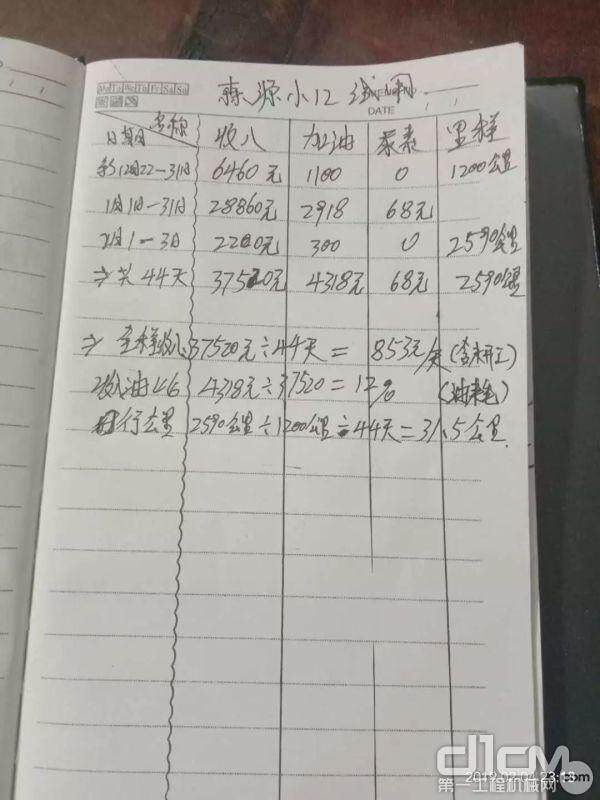 Mo Tu We Th Fr Sa Su
源小12
DATE
名称 收入 加油 尿素 里程
日期
12月22-31日 6460元 1100 0 1200公里
1月1日-31日 28860元 2918 68元
2月1-3日 2200元 300 0 2590公里
⇒共44天 37520元 4318元 68元 2590公里
⇒全程收入37520元÷44天= 853元/天(含未开工)
收油比 4318元÷37520=12%
日行公里 2590公里÷1200公里÷44天=31.5公里
d1cm
.com
第一工程机械网